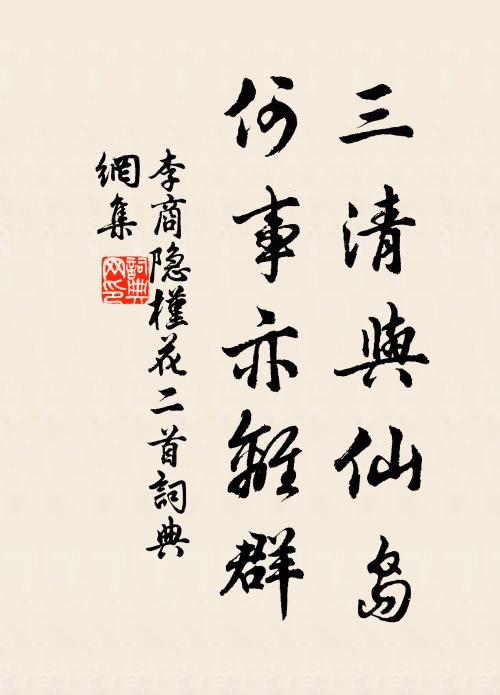 三清與仙島
何事亦離群
李商隐槿花二首詞典
網集
詞典網印